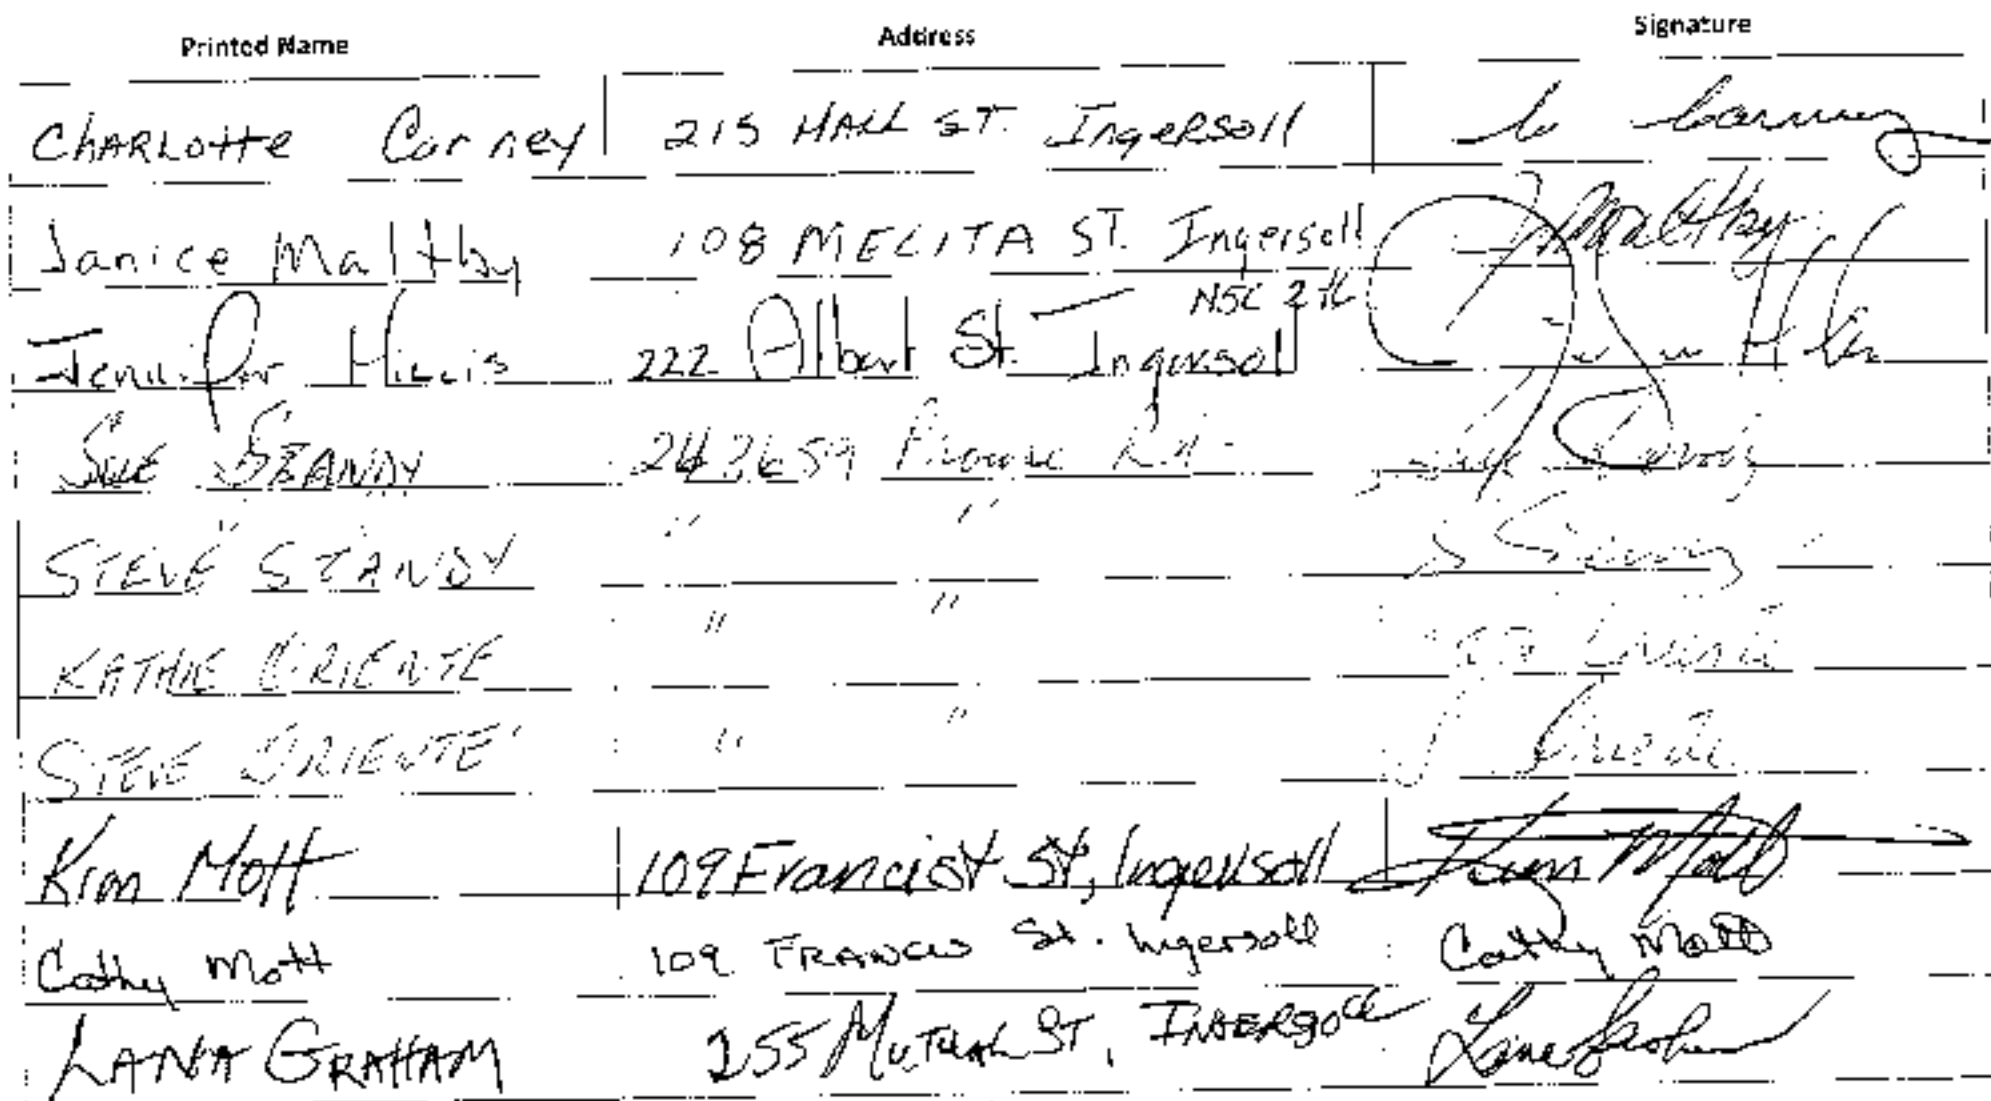 Printed Name Address Signature
CHARLOTTE Carney 215 HALL ST. Ingersoll
Janice Maltby 108 MELITA ST. Ingersoll J Maltby
Jennifer Hillis 222 Albert St. Ingersoll
Sue STANDY Rd
" "
STEVE STANDY
" "
KATHIE ORIENTE
" "
STEVE ORIENTE
Kim Mott 109 Francis St, Ingersoll Kim Mott
Cathy Mott 109 FRANCIS St. Ingersoll Cathy Mott
LANA GRAHAM 255 MUTUAL ST, INGERSOLL